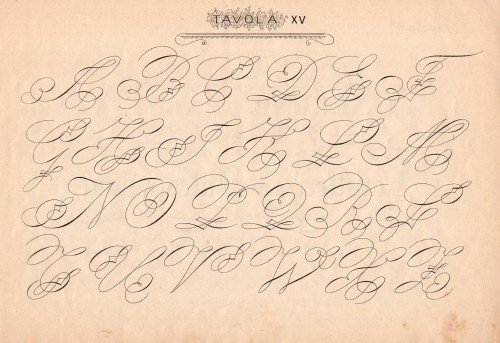 TAVOLA XV
A B C D E F
G H I K L M
N O P Q R S
T U V W X Z